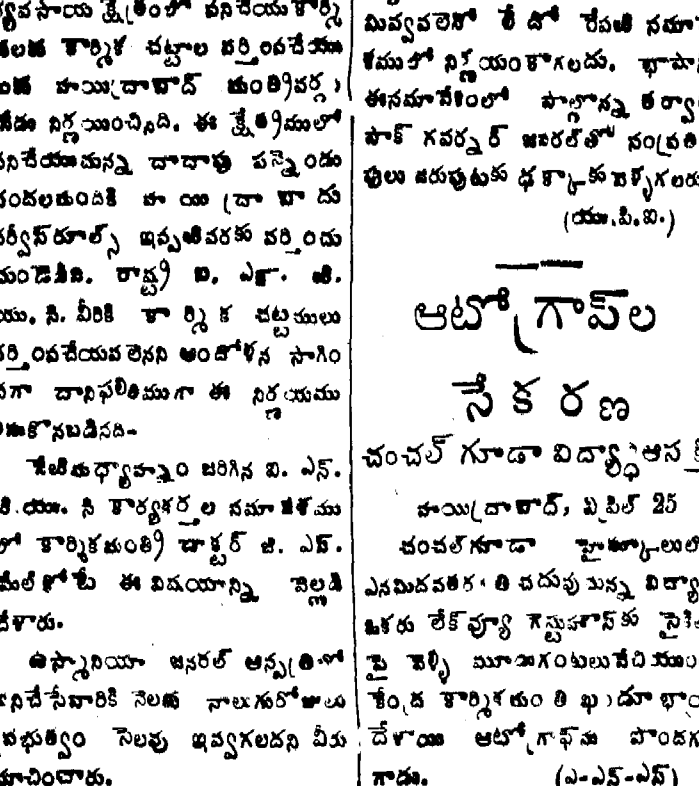 వ్యవసాయ క్షేత్రంలో పనిచేయు కార్మి
కులకు కార్మిక చట్టాల వర్తింపచేయు
టకు హయిద్రాబాద్ మంత్రివర్గం
నేడు నిర్ణయించినది. ఈ క్షేత్రములో
పనిచేయుచున్న దాదాపు పన్నెండు
వందలమందికి హయిద్రాబాదు
సర్వీస్‌రూల్స్ ఇప్పటివరకు వర్తిందు
చుండెడివి. రాష్ట్ర ఐ. ఎన్. టి.
యు. సి. వీరికి కార్మిక చట్టములు
వర్తింపచేయవలెనని ఆందోళన సాగిం
చగా దానిఫలితముగా ఈ నిర్ణయము
తీసుకొనబడినది-
నేటిమధ్యాహ్నం జరిగిన ఐ. ఎన్.
టి.యు. సి కార్యకర్తల సమావేశము
లో కార్మికమంత్రి డాక్టర్ జి. ఎస్.
మేల్కోటే ఈ విషయాన్ని వెల్లడి
చేశారు.
ఉస్మానియా జనరల్ ఆస్పత్రిలో
పనిచేసేవారికి నెలకు నాలుగురోజులు
ప్రభుత్వం సెలవు ఇవ్వగలదని వీరు
సూచించారు.
మివ్వవలెనో లేదో రేపటి సమా
శములో నిర్ణయంకాగలదు.
ఈసమావేశంలో పాల్గొన్న తర్వా
పాక్ గవర్నర్ జనరల్‌తో సంప్రతి
పులు జరుపుటకు ఢక్కాకు వెళ్ళగలరు
(యు.పి.ఐ.)
ఆటోగ్రాఫ్‌ల
సేకరణ
చంచల్ గూడా విద్యార్థి ఆసక్
హయిద్రాబాద్, ఏప్రిల్ 25
చంచల్‌గూడా హైస్కూలులో
ఎనిమిదవతరగతి చదువుచున్న విద్యా
ఒకరు లేక్‌వ్యూ గెస్టుహౌస్‌కు సైకి
పై వెళ్ళి మూడుగంటలువేచియుం
కేంద్ర కార్మికమంత్రి ఖండూభా
దేశాయి ఆటోగ్రాఫ్‌ను పొందగ
గాడు. (ఎ-ఎన్-ఎస్)